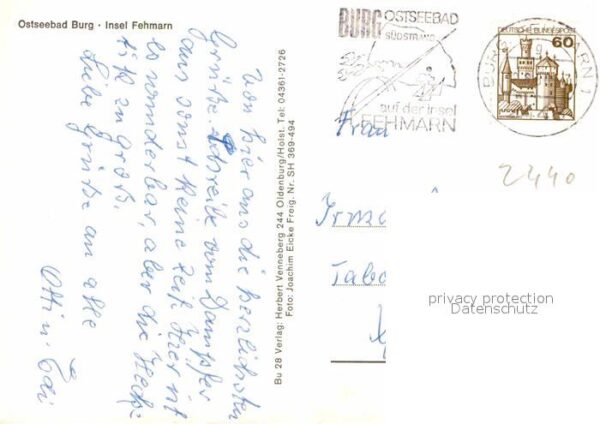 Ostseebad Burg · Insel Fehmarn
Von hier aus die herzlichsten
Grüße. Schreibe vom Dampfer
aus sonst keine Zeit. Hier ist
es wunderbar, aber die Hektik
zu groß.
Liebe Grüße an alle
Bu 28 Verlag: Herbert Venneberg 244 Oldenburg/Holst. Tel: 04361-2726
Foto: Joachim Eicke Freig. Nr. SH 369-494
BURG OSTSEEBAD
SÜDSTRAND
auf der Insel
FEHMARN
DEUTSCHE BUNDESPOST
60
BURG
ARN 1
2440
Frau
Irm
Tabo
privacy protection
Datenschutz